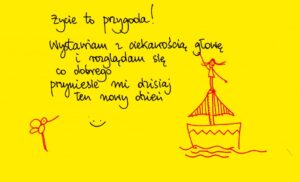 Życie to przygoda!
Wystawiam z ciekawością głowę
i rozglądam się
co dobrego
przyniesie mi dzisiaj
ten nowy dzień